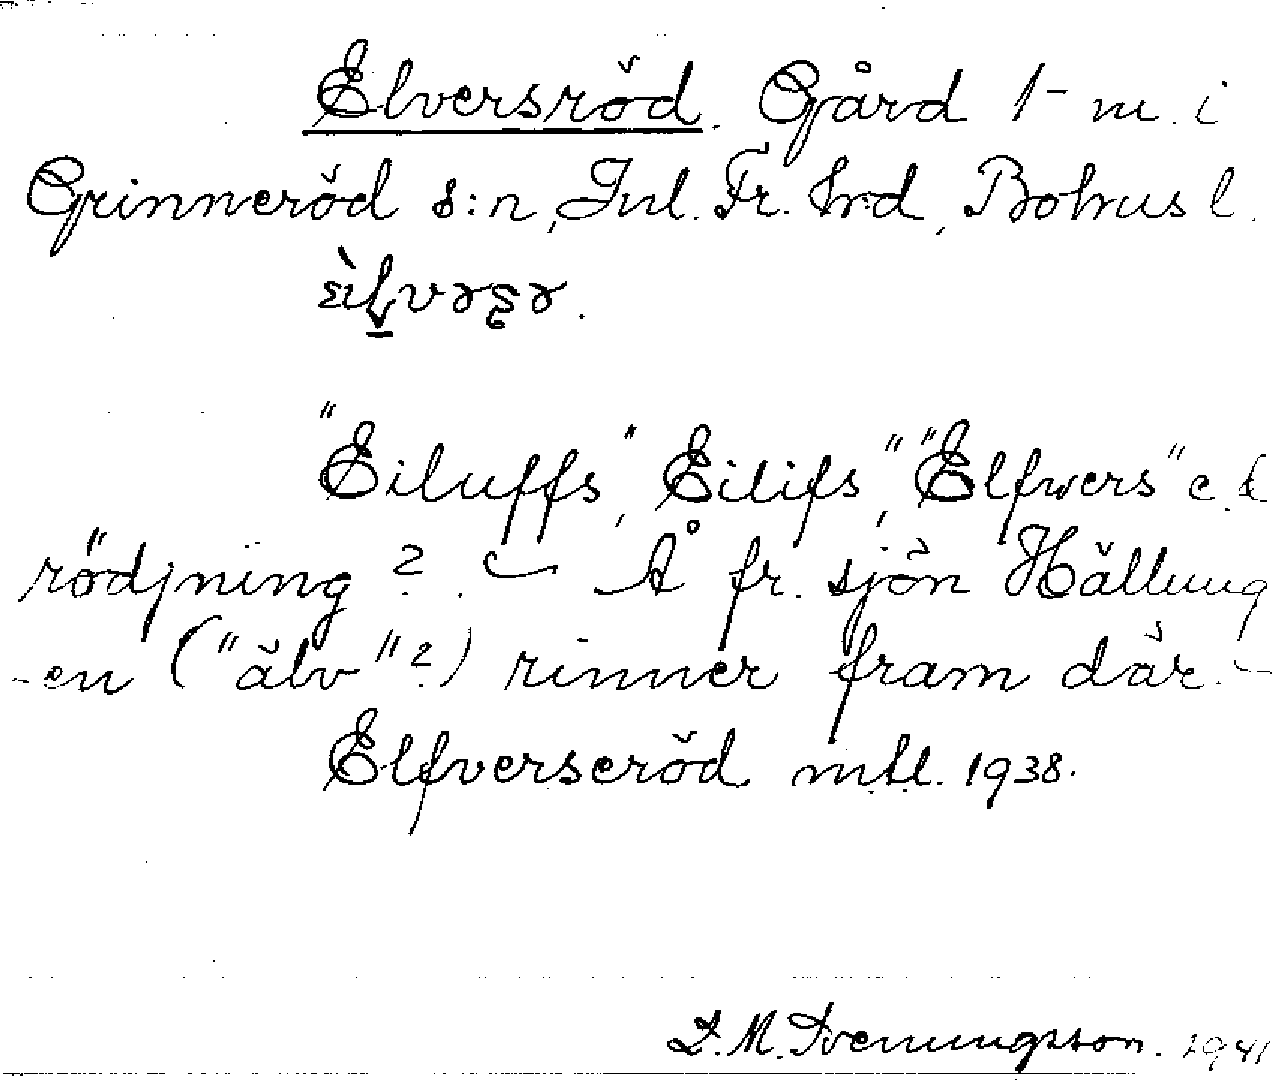 Elversröd. Gård 1 m. i
Grinneröd s:n, Inl. Fr. hrd, Bohusl.
"Eiluffs", Eilifs", "Elfwers" e. d.
rödjning? Å fr. sjön Hällung
-en ("älv"?) rinner fram där. -
Elfverseröd mtl. 1938.
J. M. Svenungsson. 1941